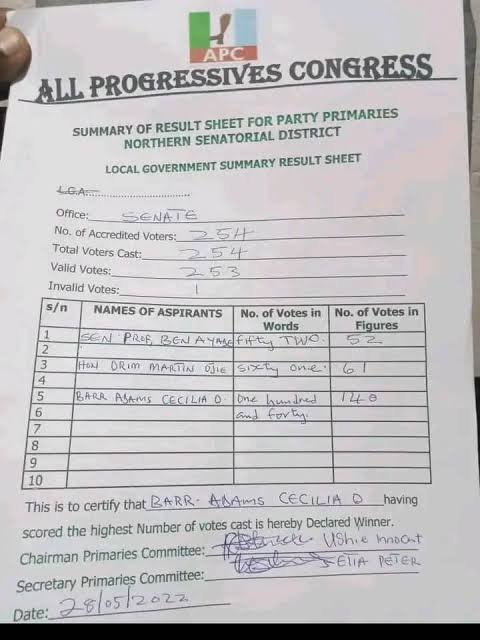 APC
ALL PROGRESSIVES CONGRESS
SUMMARY OF RESULT SHEET FOR PARTY PRIMARIES
NORTHERN SENATORIAL DISTRICT
LOCAL GOVERNMENT SUMMARY RESULT SHEET
L.G.A:..............................
Office: SENATE
No. of Accredited Voters: 254
Total Voters Cast: 254
Valid Votes: 253
Invalid Votes: 1
s/n NAMES OF ASPIRANTS No. of Votes in Words No. of Votes in Figures
1 SEN PROF, BEN AYADE fifty TWO. 52
2
3 HON ORIM MARTIN OJIE sixty one. 61
4
5 BARR ADAMS CECILIA O. One hundred and forty. 140
6
7
8
9
10
This is to certify that BARR. ADAMS CECILIA O having
scored the highest Number of votes cast is hereby Declared Winner.
Chairman Primaries Committee: Ushie Innocent
Secretary Primaries Committee: ETTA PETER
Date: 28/05/2022